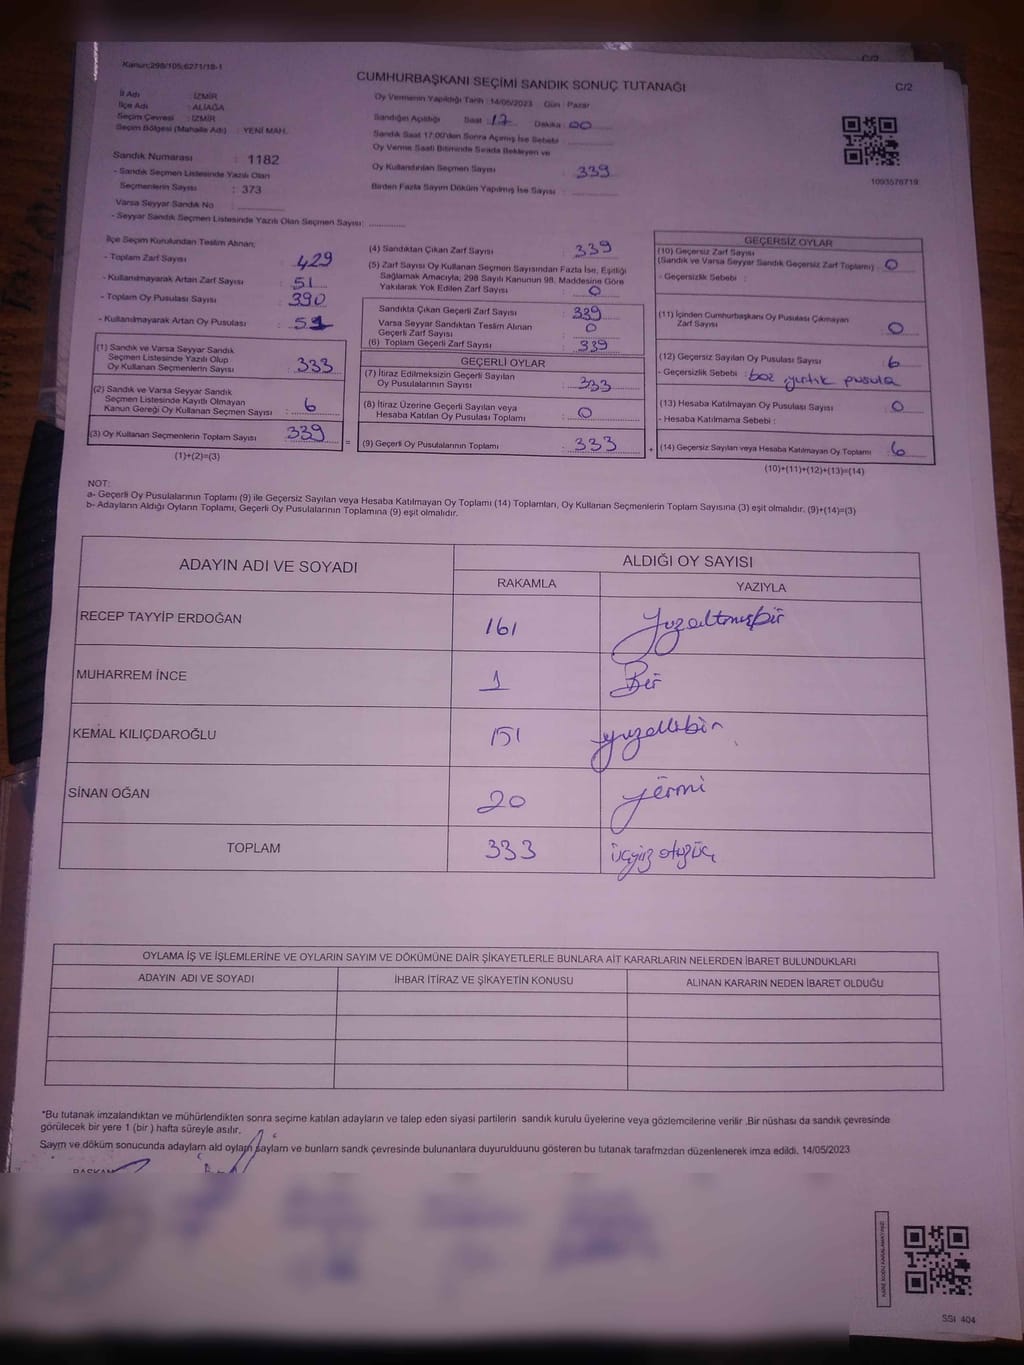 Kanun;298/105;6271/18-1
C/2
CUMHURBAŞKANI SEÇİMİ SANDIK SONUÇ TUTANAĞI
C/2
İl Adı : İZMİR
İlçe Adı : ALİAĞA
Seçim Çevresi : İZMİR
Seçim Bölgesi (Mahalle Adı) : YENİ MAH.
Sandık Numarası : 1182
- Sandık Seçmen Listesinde Yazılı Olan
Seçmenlerin Sayısı : 373
Varsa Seyyar Sandık No :
- Seyyar Sandık Seçmen Listesinde Yazılı Olan Seçmen Sayısı:
Oy Vermenin Yapıldığı Tarih :14/05/2023 Gün : Pazar
Sandığın Açıldığı Saat : 17 Dakika : 00
Sandık Saat 17:00'den Sonra Açılmış İse Sebebi :
Oy Verme Saati Bitiminde Sırada Bekleyen ve
Oy Kullandırılan Seçmen Sayısı : 339
Birden Fazla Sayım Döküm Yapılmış İse Sayısı :
1093576719
İlçe Seçim Kurulundan Teslim Alınan;
- Toplam Zarf Sayısı : 429
- Kullanılmayarak Artan Zarf Sayısı : 51
- Toplam Oy Pusulası Sayısı : 390
- Kullanılmayarak Artan Oy Pusulası : 51
(1) Sandık ve Varsa Seyyar Sandık
Seçmen Listesinde Yazılı Olup
Oy Kullanan Seçmenlerin Sayısı : 333
(2) Sandık ve Varsa Seyyar Sandık
Seçmen Listesinde Kayıtlı Olmayan
Kanun Gereği Oy Kullanan Seçmen Sayısı : 6
(3) Oy Kullanan Seçmenlerin Toplam Sayısı : 339
(1)+(2)=(3)
(4) Sandıktan Çıkan Zarf Sayısı : 339
(5) Zarf Sayısı Oy Kullanan Seçmen Sayısından Fazla İse, Eşitliği
Sağlamak Amacıyla; 298 Sayılı Kanunun 98. Maddesine Göre
Yakılarak Yok Edilen Zarf Sayısı : 0
Sandıkta Çıkan Geçerli Zarf Sayısı : 339
Varsa Seyyar Sandıktan Teslim Alınan
Geçerli Zarf Sayısı : 0
(6) Toplam Geçerli Zarf Sayısı : 339
GEÇERLİ OYLAR
(7) İtiraz Edilmeksizin Geçerli Sayılan
Oy Pusulalarının Sayısı : 333
(8) İtiraz Üzerine Geçerli Sayılan veya
Hesaba Katılan Oy Pusulası Toplamı : 0
= (9) Geçerli Oy Pusulalarının Toplamı : 333
GEÇERSİZ OYLAR
(10) Geçersiz Zarf Sayısı
(Sandık ve Varsa Seyyar Sandık Geçersiz Zarf Toplamı) : 0
- Geçersizlik Sebebi :
(11) İçinden Cumhurbaşkanı Oy Pusulası Çıkmayan
Zarf Sayısı : 0
(12) Geçersiz Sayılan Oy Pusulası Sayısı : 6
- Geçersizlik Sebebi : boş yırtık pusula
(13) Hesaba Katılmayan Oy Pusulası Sayısı : 0
- Hesaba Katılmama Sebebi :
+ (14) Geçersiz Sayılan veya Hesaba Katılmayan Oy Toplamı : 6
(10)+(11)+(12)+(13)=(14)
NOT:
a- Geçerli Oy Pusulalarının Toplamı (9) ile Geçersiz Sayılan veya Hesaba Katılmayan Oy Toplamı (14) Toplamları, Oy Kullanan Seçmenlerin Toplam Sayısına (3) eşit olmalıdır. (9)+(14)=(3)
b- Adayların Aldığı Oyların Toplamı, Geçerli Oy Pusulalarının Toplamına (9) eşit olmalıdır.
ADAYIN ADI VE SOYADI ALDIĞI OY SAYISI
RAKAMLA YAZIYLA
RECEP TAYYİP ERDOĞAN 161 Yüzaltmışbir
MUHARREM İNCE 1 Bir
KEMAL KILIÇDAROĞLU 151 yüzellibir
SİNAN OĞAN 20 yirmi
TOPLAM 333 üçyüz otuzüç
OYLAMA İŞ VE İŞLEMLERİNE VE OYLARIN SAYIM VE DÖKÜMÜNE DAİR ŞİKAYETLERLE BUNLARA AİT KARARLARIN NELERDEN İBARET BULUNDUKLARI
ADAYIN ADI VE SOYADI İHBAR İTİRAZ VE ŞİKAYETİN KONUSU ALINAN KARARIN NEDEN İBARET OLDUĞU
*Bu tutanak imzalandıktan ve mühürlendikten sonra seçime katılan adayların ve talep eden siyasi partilerin sandık kurulu üyelerine veya gözlemcilerine verilir .Bir nüshası da sandık çevresinde
görülecek bir yere 1 (bir ) hafta süreyle asılır.
Sayım ve döküm sonucunda adayların ald oyların saylam ve bunların sandk çevresinde bulunanlara duyurulduunu gösteren bu tutanak tarafmzdan düzenlenerek imza edildi. 14/05/2023
BAŞKAN
SSI 404